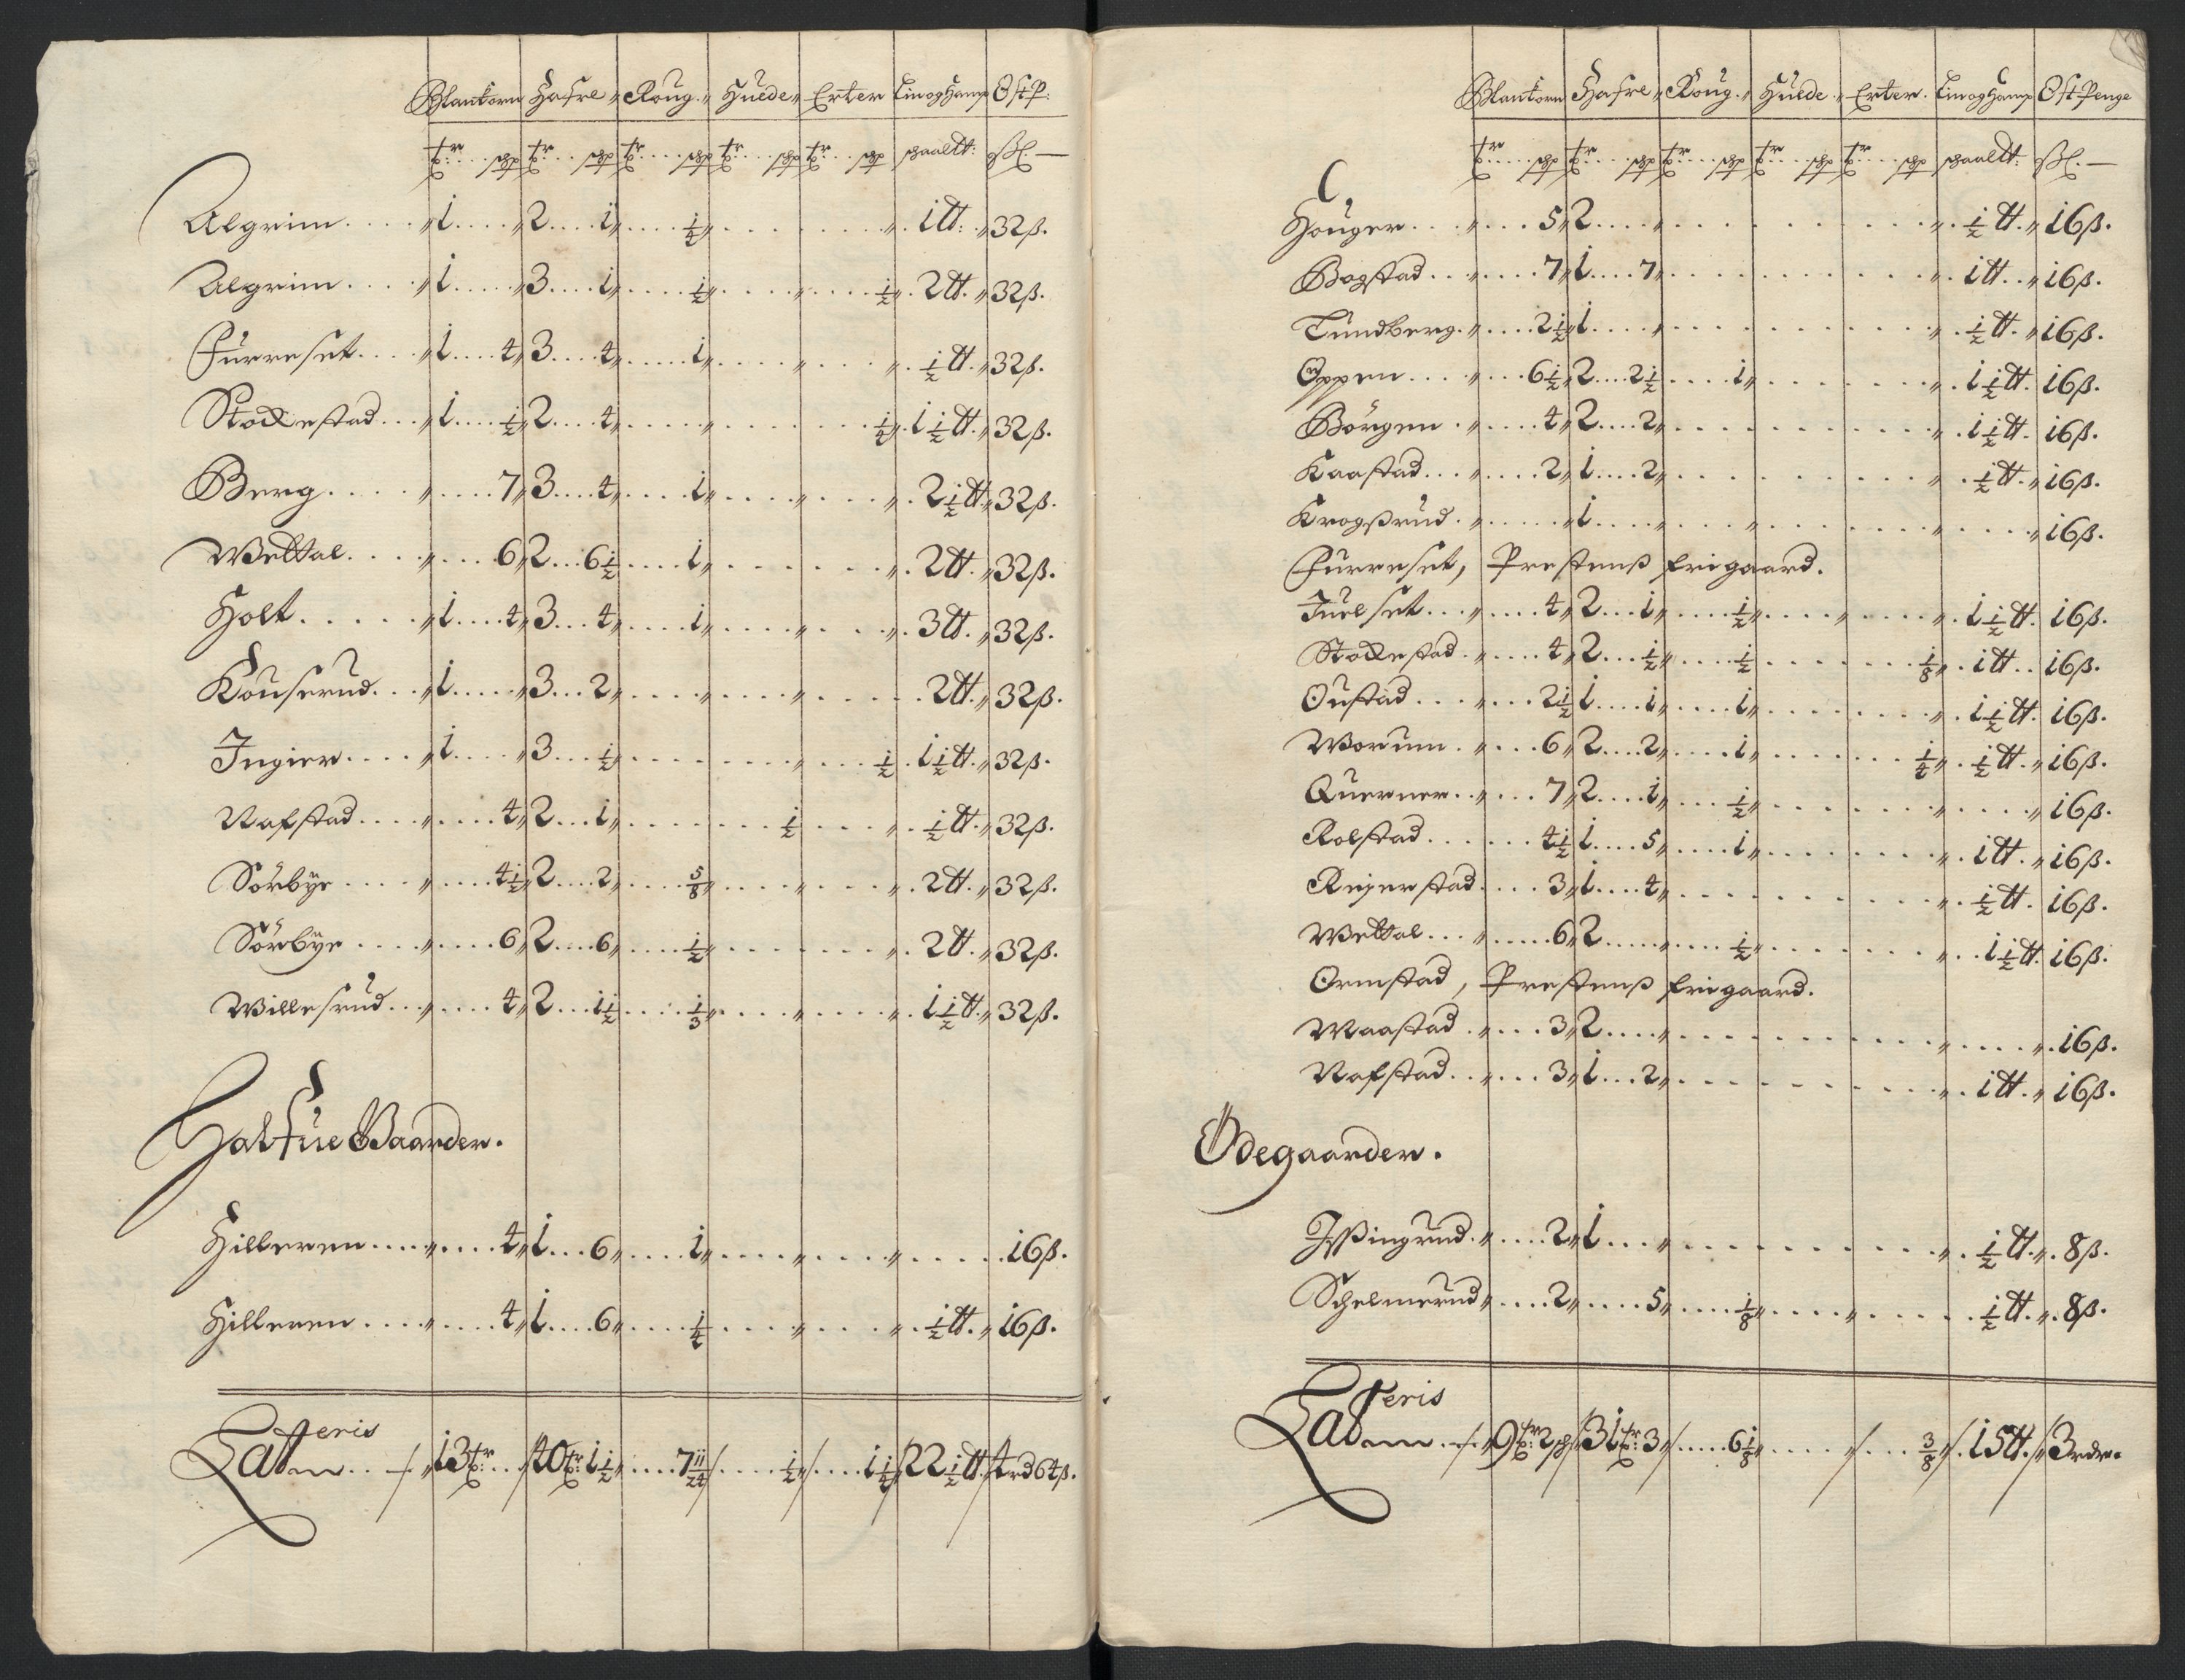 Blankorn Hafre „ Roug. „ Huede „ Erter Linog Hamp Ost P:
tr: .... schp tr: ... schp tr: .... schp tr: .... schp tr: ... schp schaaltt: ßl. —
Algrim .... „ 1 .... „ 2 .... 1 „ .... 1/4 „ ........ „ . 1 tt: . „ 32 ß.
Algrim .... „ 1 .... „ 3 .... 1 „ .... 1/2 „ .... „ .... 1/2 „ . 2 tt. „ 32 ß.
Furreset .... „ 1 .... 4 „ 3 .... 4 „ .... 1 „ .... „ .... „ . 1/2 tt. „ 32 ß.
Stockestad ... „ 1 .... 1/2 „ 2 .... 4 „ .... „ ........ 1/4 „ . 1 1/2 tt. „ 32 ß.
Berg .... „ .... 7 „ 3 .... 4 „ .... 1 „ .... „ .... „ . 2 1/2 tt. „ 32 ß.
Wettal .... „ .... 6 „ 2 ... 6 1/2 .... 1 „ ........ „ . 2 tt. „ 32 ß.
Holt ..... „ 1 .... 4 „ 3 .... 4 „ .... 1 „ .... „ ... „ . 3 tt. „ 32 ß.
Kouserud ... „ 1 .... „ 3 ... 2 „ .... „ .... „ ..... 2 tt. „ 32 ß.
Ingier .... „ 1 .... „ 3 ... 1/2 „ ........ „ ... 1/2 . 1 1/2 tt. „ 32 ß.
Nafstad .... „ .... 4 „ 2 ... 1 „ ....... 1/2 .... „ . 1/2 tt. „ 32 ß.
Sörbye .... „ .... 4 1/2 „ 2 .... 2 „ .... 5/8 „ .... „ .... „ . 2 tt. „ 32 ß.
Sörbye .... „ .... 6 „ 2 .... 6 „ .... 1/2 „ ........ „ . 2 tt. „ 32 ß.
Willesrud ... „ .... 4 „ 2 ... 1 1/2 .... 1/3 „ .... „ .... „ . 1 1/2 tt. „ 32 ß.
Halfue Gaarder.
Hilleren .... „ .... 4 „ 1 ... 6 „ .... 1 „ .... „ .... „ ..... 16 ß.
Hilleren .... „ .... 4 „ 1 .... 6 „ .... 1/4 .... „ .... „ . 1/2 tt. „ 16 ß.
Lateris ... „ 13 tr: .. 40 tr: 1 1/2 „ .... 7 11/24 .... 1/2 .... 1 1/4 22 1/2 tt. 4 rd 64 ß.
Blankorn Hafre „ Roug. „ Huede. „ Erter. Linog Hamp Ost Penge
tr: .... schp tr: .... schp tr: .... schp tr: .... schp tr: .... schp schaaltt: ßl. —
Houger ... „ .... 5 „ 2 .... „ ............ „ . 1/2 tt. „ 16 ß.
Bogstad ... „ .... 7 „ 1 .... 7 „ ............ „ . 1 tt. . „ 16 ß.
Tundberg. „ .... 2 1/2 „ 1 .... „ ............ „ . 1/2 tt. „ 16 ß.
Oppen .... „ ... 6 1/2 „ 2 .... 2 1/2 .... 1 „ ........ „ . 1 1/2 tt. 16 ß.
Börgen . „ .... 4 „ 2 .... 2 „ ............ „ . 1 1/2 tt. 16 ß.
Kaastad ... „ .... 2 „ 1 .... 2 „ ............ „ . 1/2 tt. „ 16 ß.
Krogsrud . „ ..... „ 1 .... „ .... „ ........ „ ..... „ 16 ß.
Furreset, Prestens frigaard.
Juelset ... „ .... 4 „ 2 ... 1 „ .... 1/2 „ .... „ .... „ . 1 1/2 tt. 16 ß.
Stockestad . „ .... 4 „ 2 ... 1/2 „ .... 1/2 ........ 1/8 „ . 1 tt. . 16 ß.
Oustad ... „ ... 2 1/2 1 .... 1 „ .... 1 „ ........ „ . 1 1/2 tt. 16 ß.
Worum . „ ... 6 „ 2 .... 2 „ .... 1 „ ....... 1/4 „ . 1/2 tt. „ 16 ß.
Querner . „ ... 7 „ 2 .... 1 „ ... 1/2 „ ........ „ ..... „ 16 ß.
Rolstad ....... 4 1/2 1 .... 5 „ .... 1 „ ........ „ . 1 tt. „ 16 ß.
Reierstad .... 3 „ 1 .... 4 „ ............ „ . 1/2 tt. 16 ß.
Wettal ... „ ..... 6 „ 2 ..... „ .... 1/2 „ ........ „ .. 1 1/2 tt. 16 ß.
Ormstad, Prestens frigaard.
Maastad . „ ... 3 „ 2 .... „ ............ „ .... „ . 16 ß.
Nafstad .. „ ... 3 „ 1 ... 2 „ ............ „ . 1 tt. „ 16 ß.
Ödegaarder.
Wingrud. „ .... 2 „ 1 ... „ ............ „ . 1/2 tt. „ . 8 ß.
Schelmerud „ .... 2 „ .... 5 „ .... 1/8 „ .... „ ..... 1/2 tt. „ . 8 ß.
Lateris ... „ 9 tr: 2 sch 31 tr: 3 ..... 6 1/8 „ .... .... 3/8 . 15 tt. „ 3 rdr.